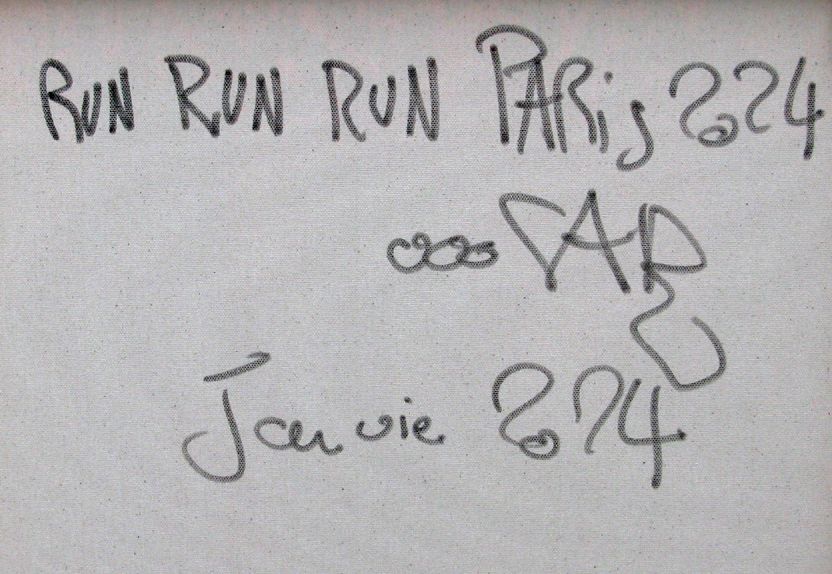 RUN RUN RUN PARis 2024
Janvie 2024